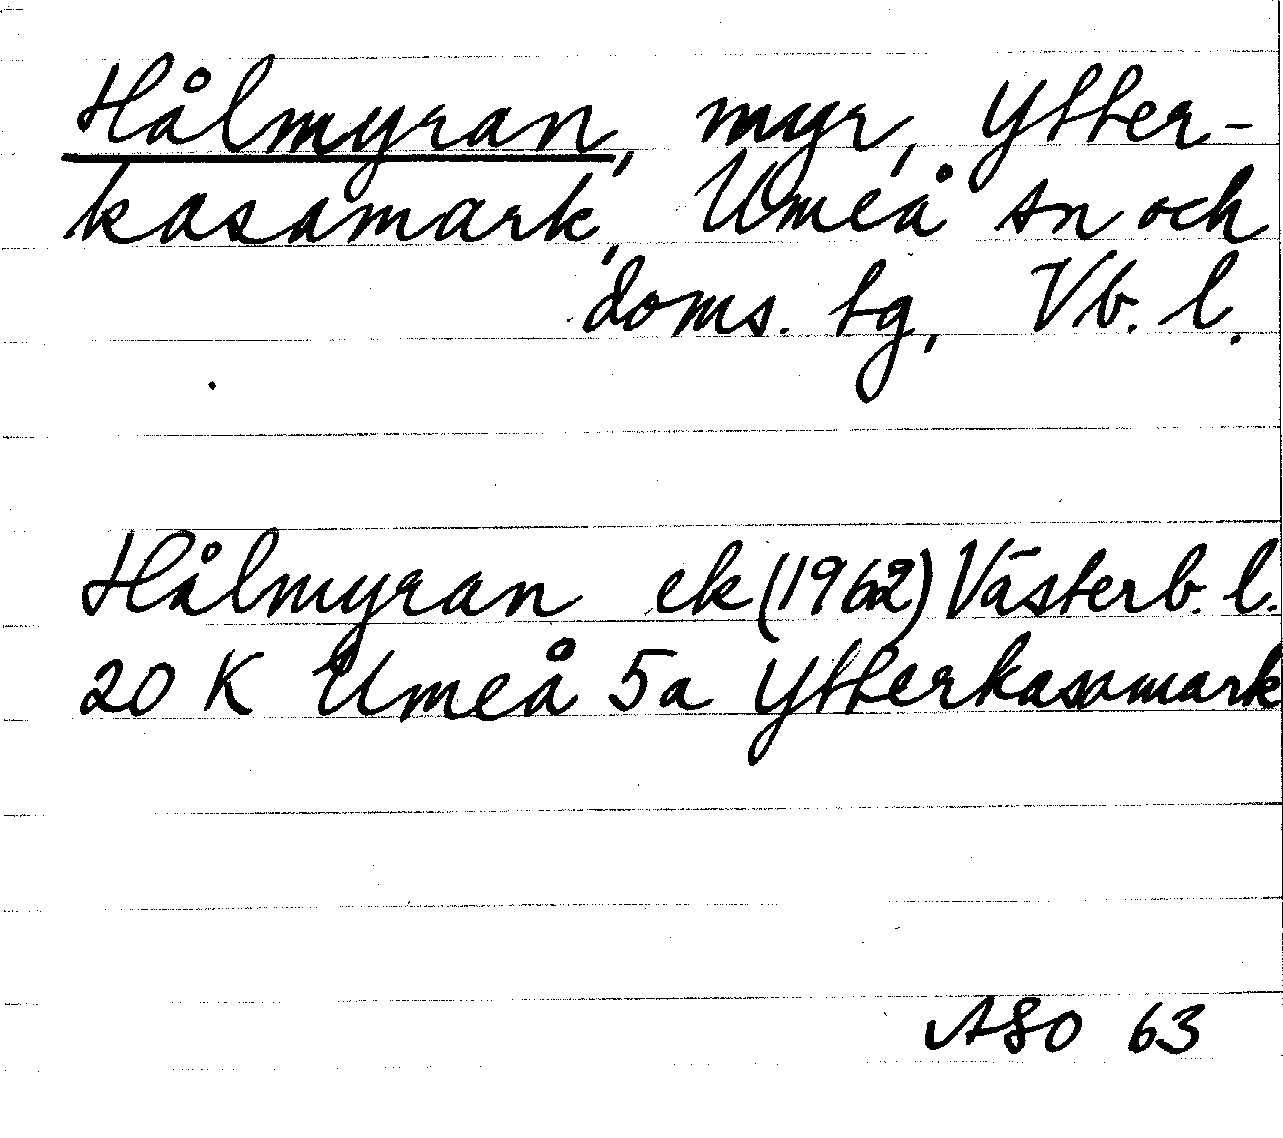 Hålmyran, myr, Ytter-
kasamark, Umeå sn och
doms. tg, Vb. l.
Hålmyran ek (1962) Västerb. l.
20 K Umeå 5a Ytterkasamark
ASO 63